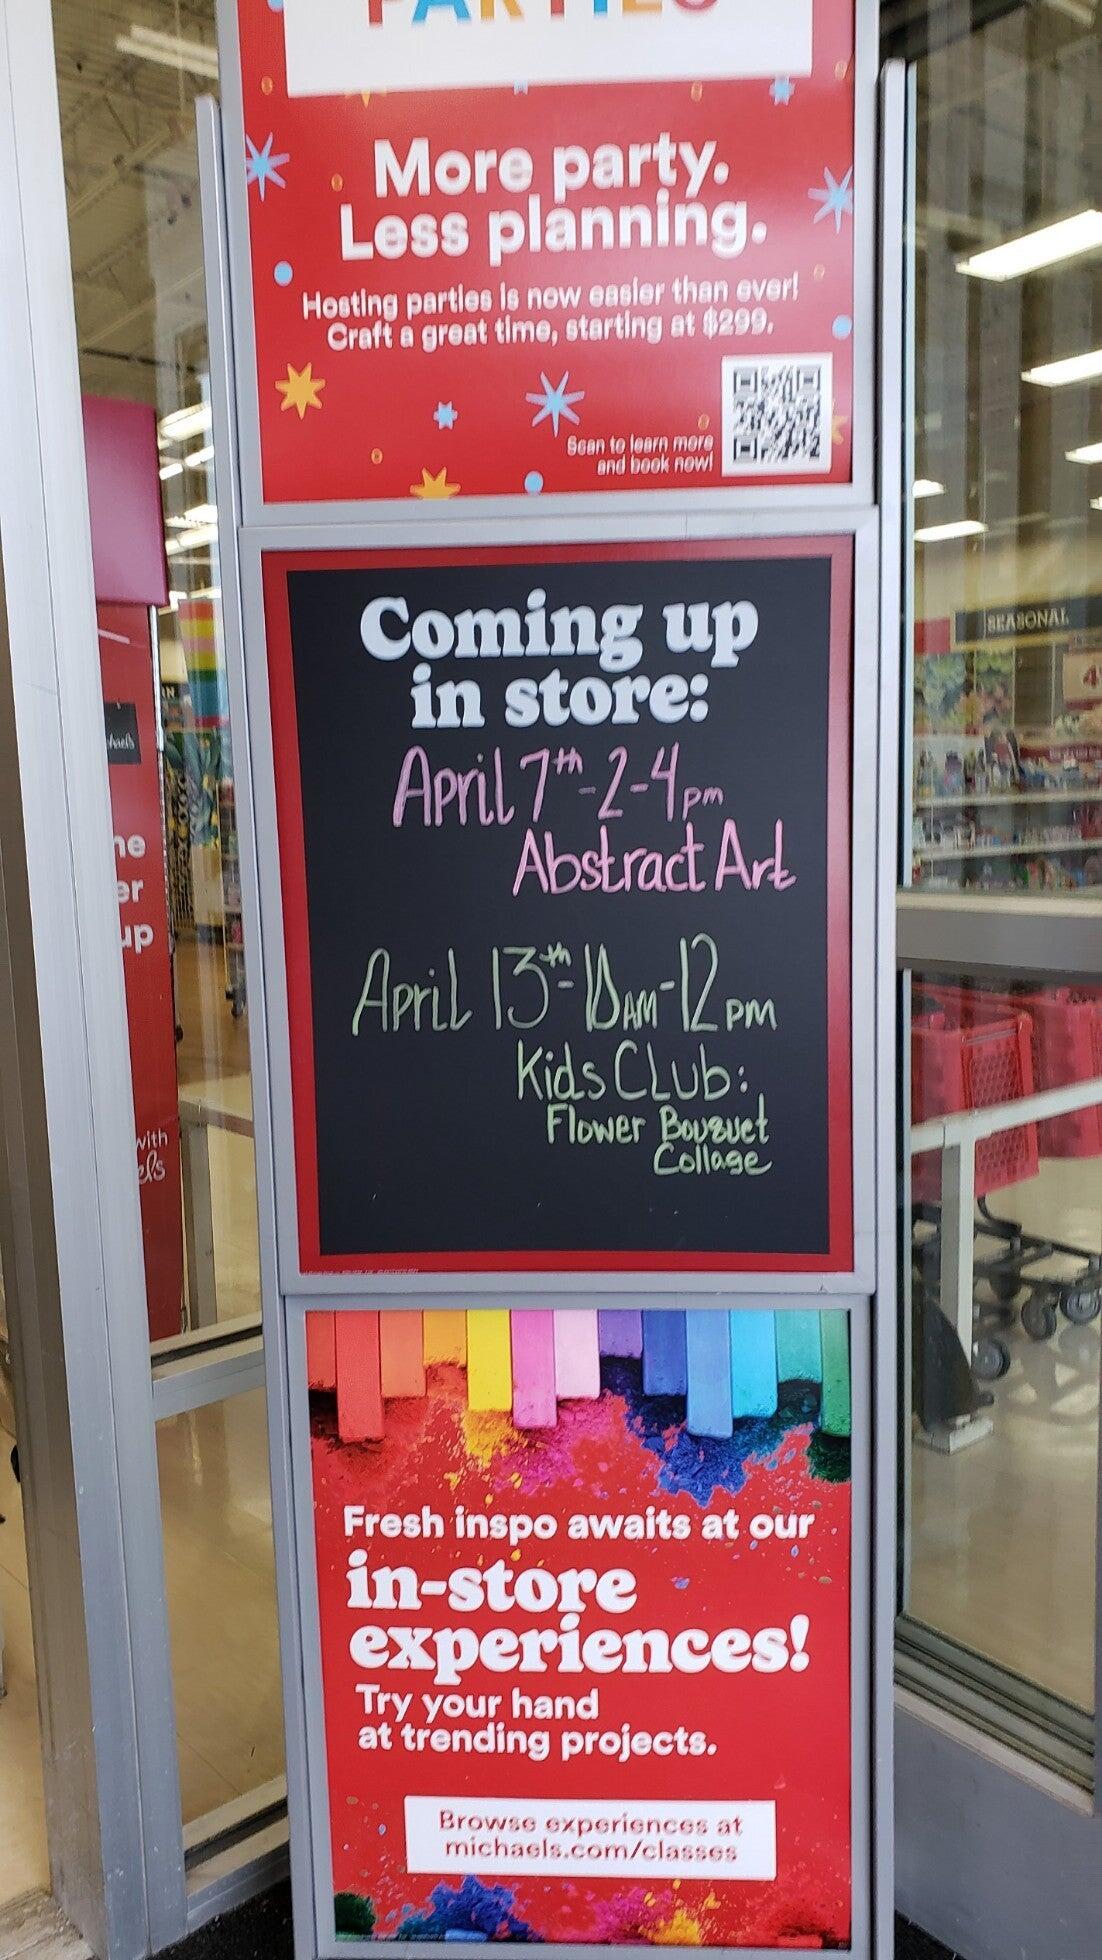 PARTIES
More party.
Less planning.
Hosting parties is now easier than ever!
Craft a great time, starting at $299.
Scan to learn more
and book now!
Coming up
in store:
April 7th - 2-4pm
Abstract Art
April 13th - 10AM - 12PM
Kids Club:
Flower Bouquet
Collage
Fresh inspo awaits at our
in-store
experiences!
Try your hand
at trending projects.
Browse experiences at
michaels.com/classes
SEASONAL
4
he
er
up
with
els